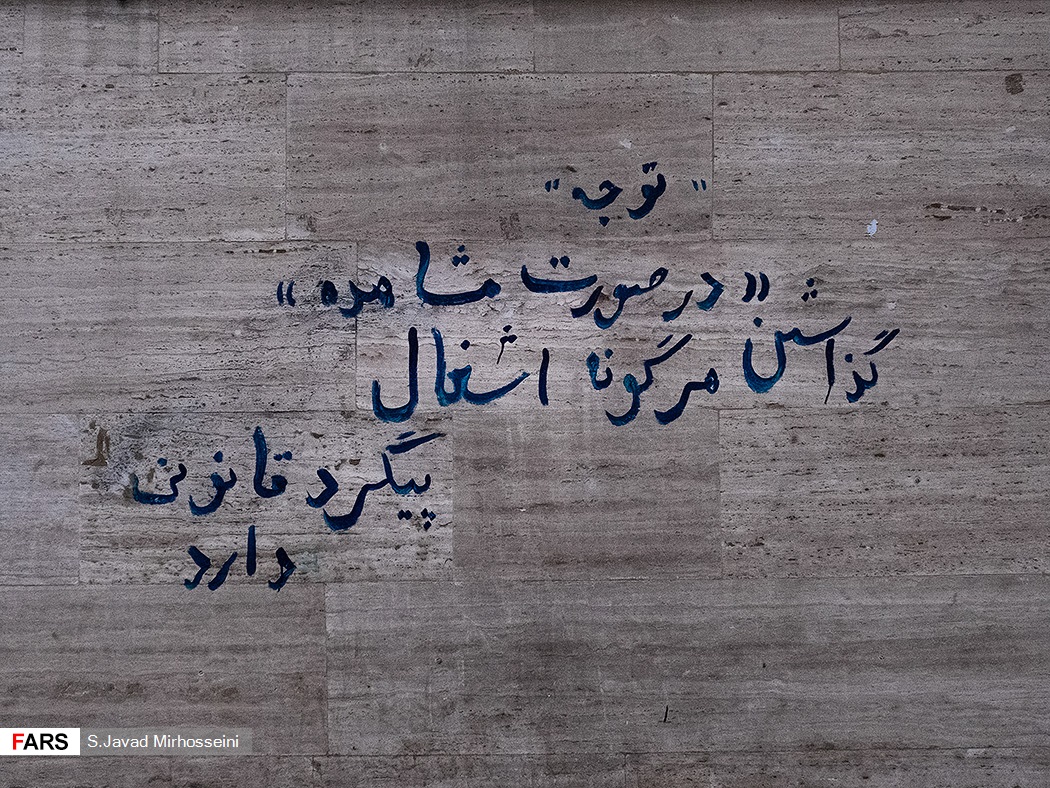 " توجه "
« در صورت مشاهره »
گذاشتن هرگونا اشغال
پیگرد قانونی
دارد
FARS S.Javad Mirhosseini